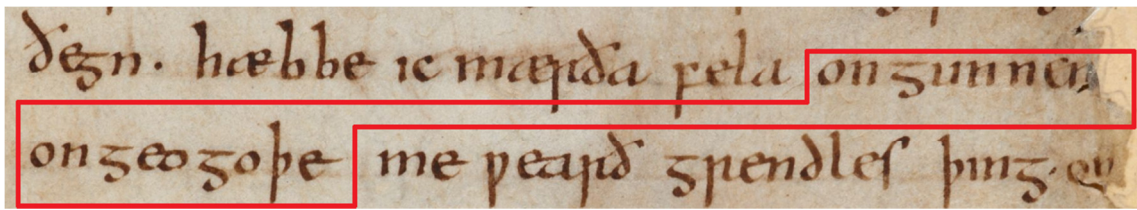 ðegn. hæbbe ic mærða fela ongunnen
ongeogoþe me ƿearð grendles þing.